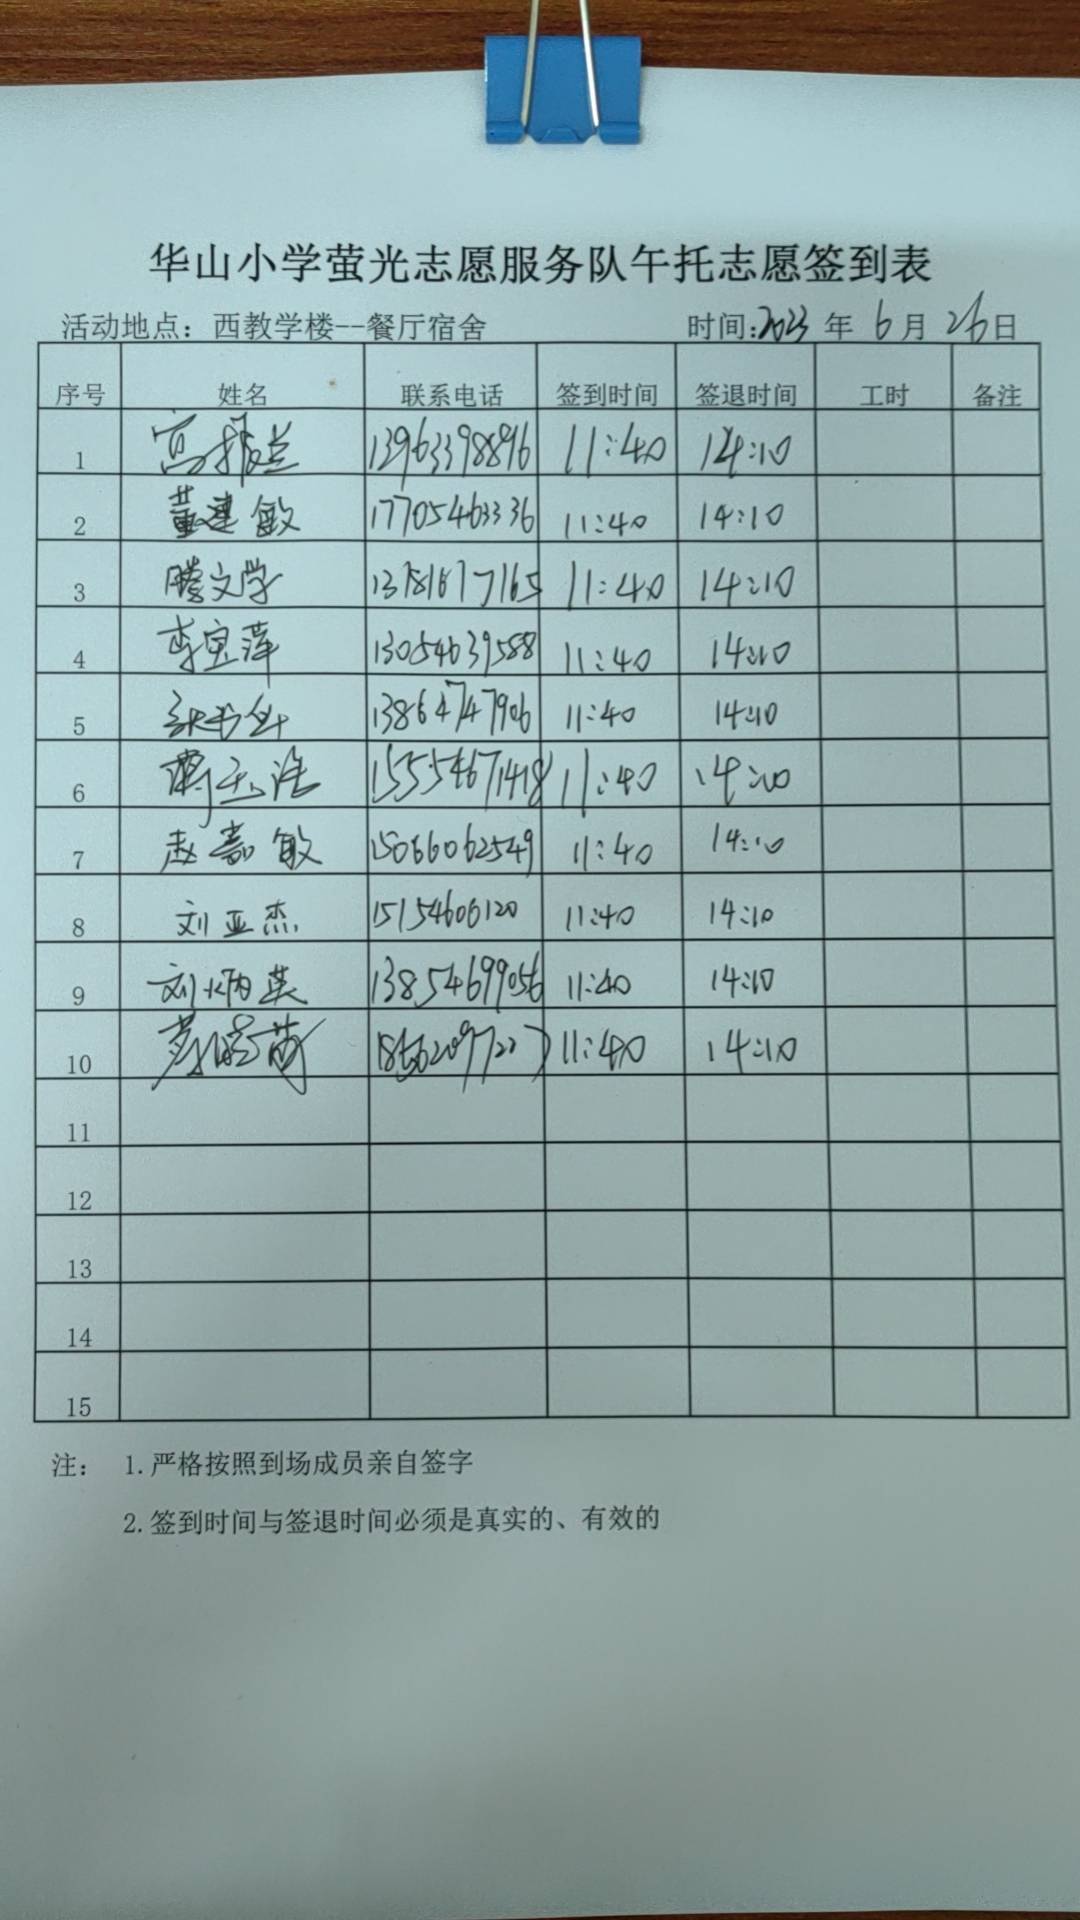 华山小学萤光志愿服务队午托志愿签到表
活动地点：西教学楼--餐厅宿舍 时间:2023 年 6 月 26 日
序号 姓名 联系电话 签到时间 签退时间 工时 备注
1 高振兰 13963398896 11:40 14:10
2 董建敏 17705463336 11:40 14:10
3 滕文学 11:40 14:10
4 李宝萍 13054639588 11:40 14:10
5 13864747906 11:40 14:10
6 15554671418 11:40 14:10
7 赵嘉敏 15066062549 11:40 14:10
8 刘亚杰 15154606120 11:40 14:10
9 刘炳英 13854699056 11:40 14:10
10 11:40 14:10
11
12
13
14
15
注： 1.严格按照到场成员亲自签字
2.签到时间与签退时间必须是真实的、有效的